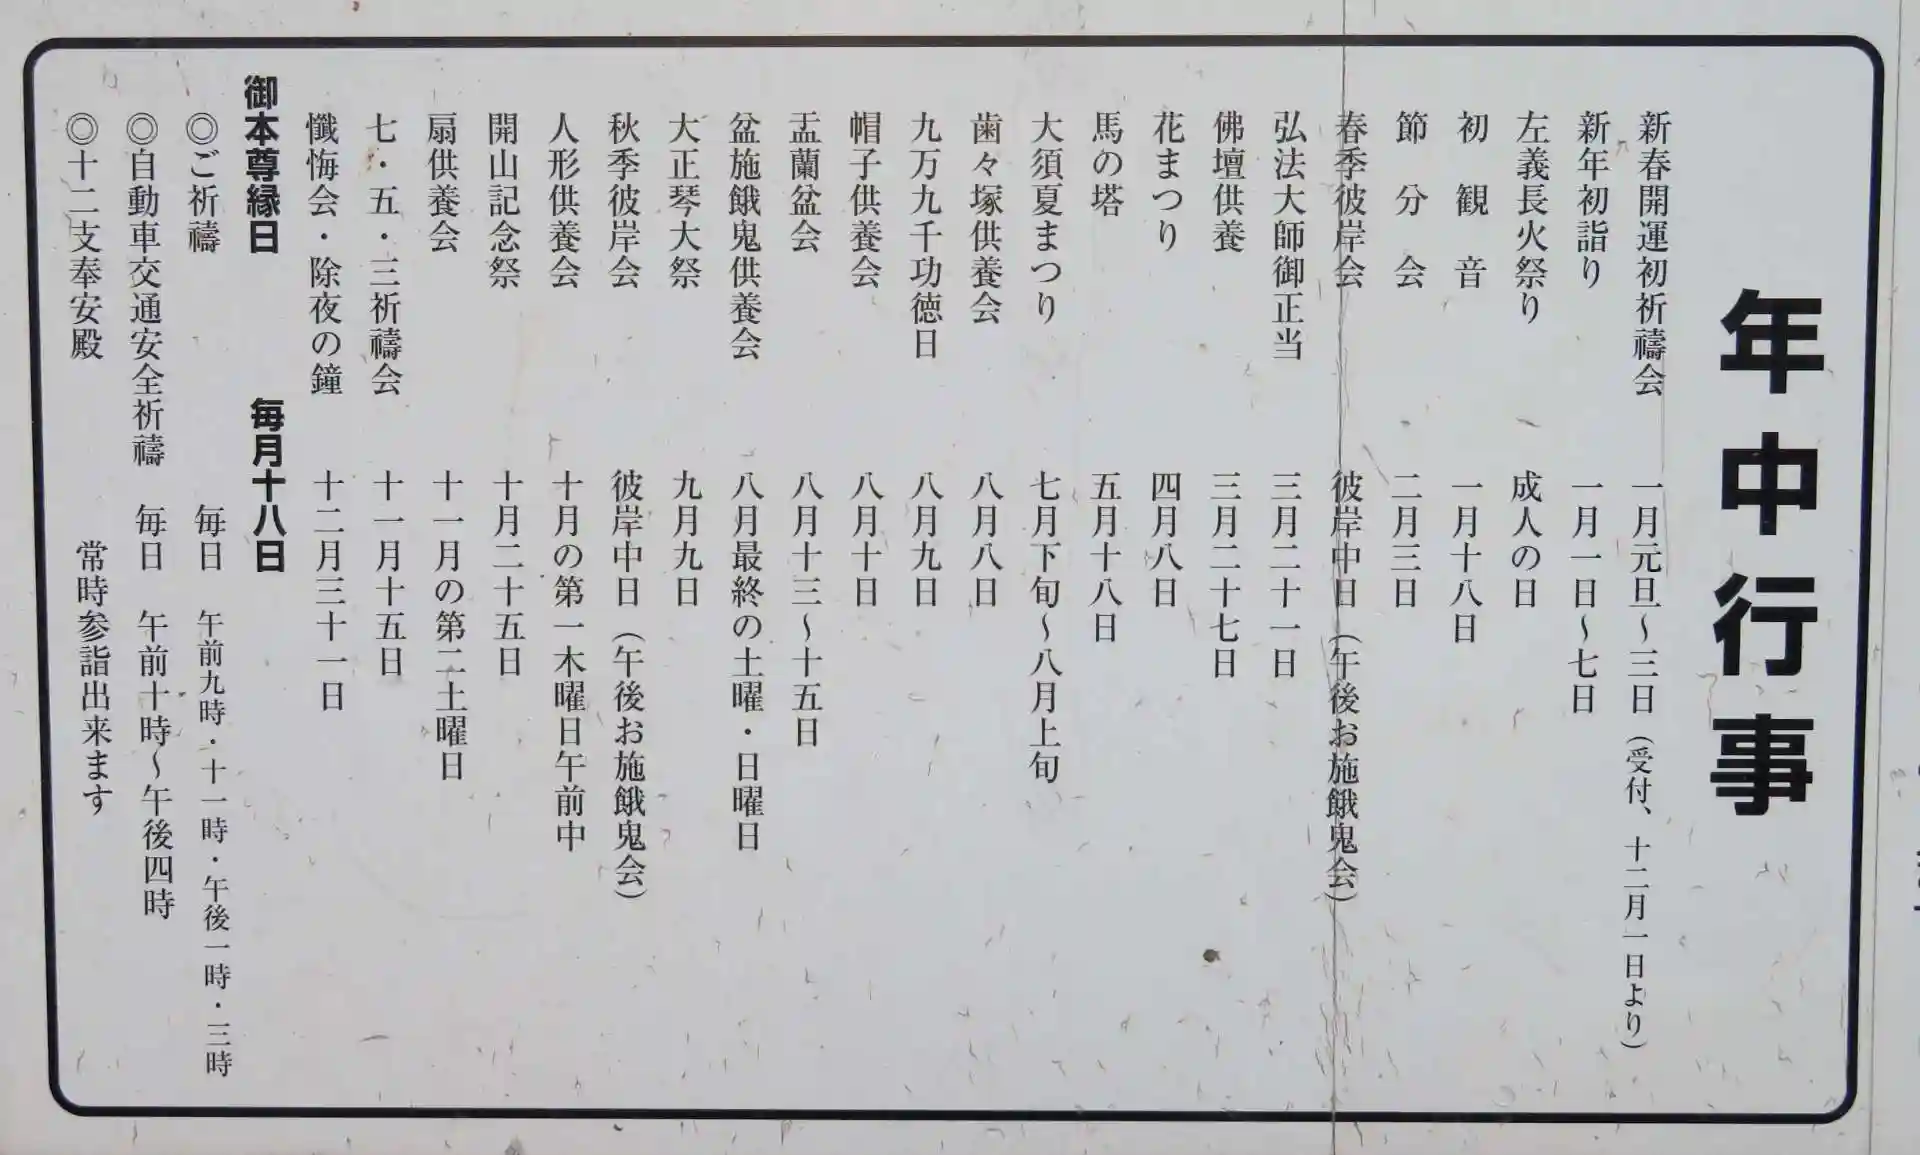 年中行事
新春開運初祈禱会　一月元旦〜三日（受付、十二月一日より）
新年初詣り　一月一日〜七日
左義長火祭り　成人の日
初観音　一月十八日
節分会　二月三日
春季彼岸会　彼岸中日（午後お施餓鬼会）
弘法大師御正当　三月二十一日
佛壇供養　三月二十七日
花まつり　四月八日
馬の塔　五月十八日
大須夏まつり　七月下旬〜八月上旬
歯々塚供養会　八月八日
九万九千功徳日　八月九日
帽子供養会　八月十日
盂蘭盆会　八月十三〜十五日
盆施餓鬼供養会　八月最終の土曜・日曜日
大正琴大祭　九月九日
秋季彼岸会　彼岸中日（午後お施餓鬼会）
人形供養会　十月の第一木曜日午前中
開山記念祭　十月二十五日
扇供養会　十一月の第二土曜日
七・五・三祈禱会　十一月十五日
懺悔会・除夜の鐘　十二月三十一日
御本尊縁日　毎月十八日
◎ご祈禱　毎日　午前九時・十一時・午後一時・三時
◎自動車交通安全祈禱　毎日　午前十時〜午後四時
◎十二支奉安殿　常時参詣出来ます